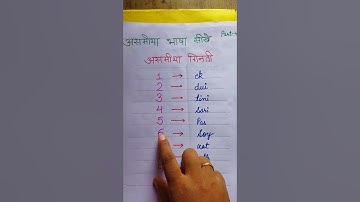 असमीया भाषा सीखें Part-
असमीया गिनती
1 → ek
2 → dui
3 → tini
4 → Sari
5 → Pas
6 → Soy
→ xat